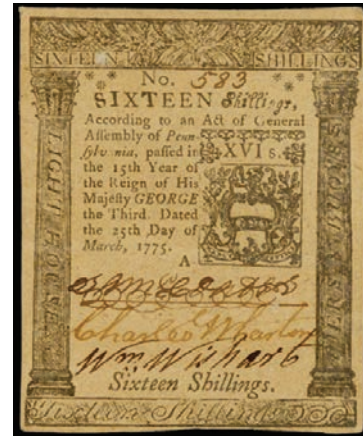 SIXTEEN SHILLINGS
No. 583
SIXTEEN Shillings,
According to an Act of General
Assembly of Penn-
sylvania, passed in
the 15th Year of
the Reign of His
Majesty GEORGE
the Third. Dated
the 25th Day of
March, 1775.
XVI s.
A
LIGHT HOUSE
Charles Wharton
Wm Wishart
Sixteen Shillings.
Sixteen Shillings